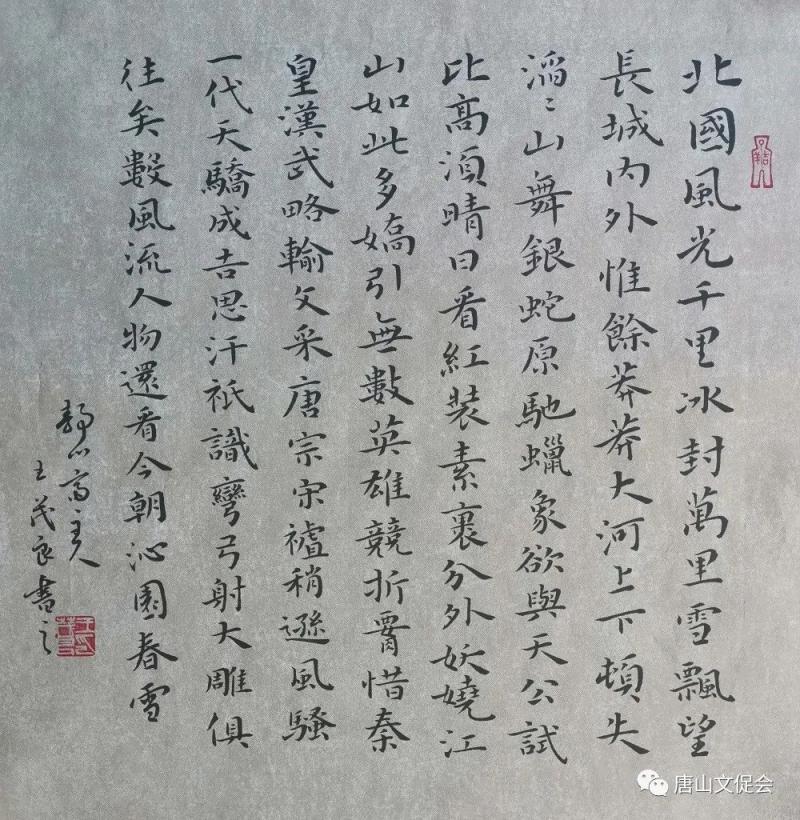 北國風光千里冰封萬里雪飄望
長城內外惟餘莽莽大河上下頓失
滔〻山舞銀蛇原馳蠟象欲與天公試
比高須晴日看紅裝素裹分外妖嬈江
山如此多嬌引無數英雄競折腰惜秦
皇漢武略輸文采唐宗宋祖稍遜風騷
一代天驕成吉思汗祇識彎弓射大雕俱
往矣數風流人物還看今朝沁園春雪
靜心齋主人
王茂良書之
唐山文促会